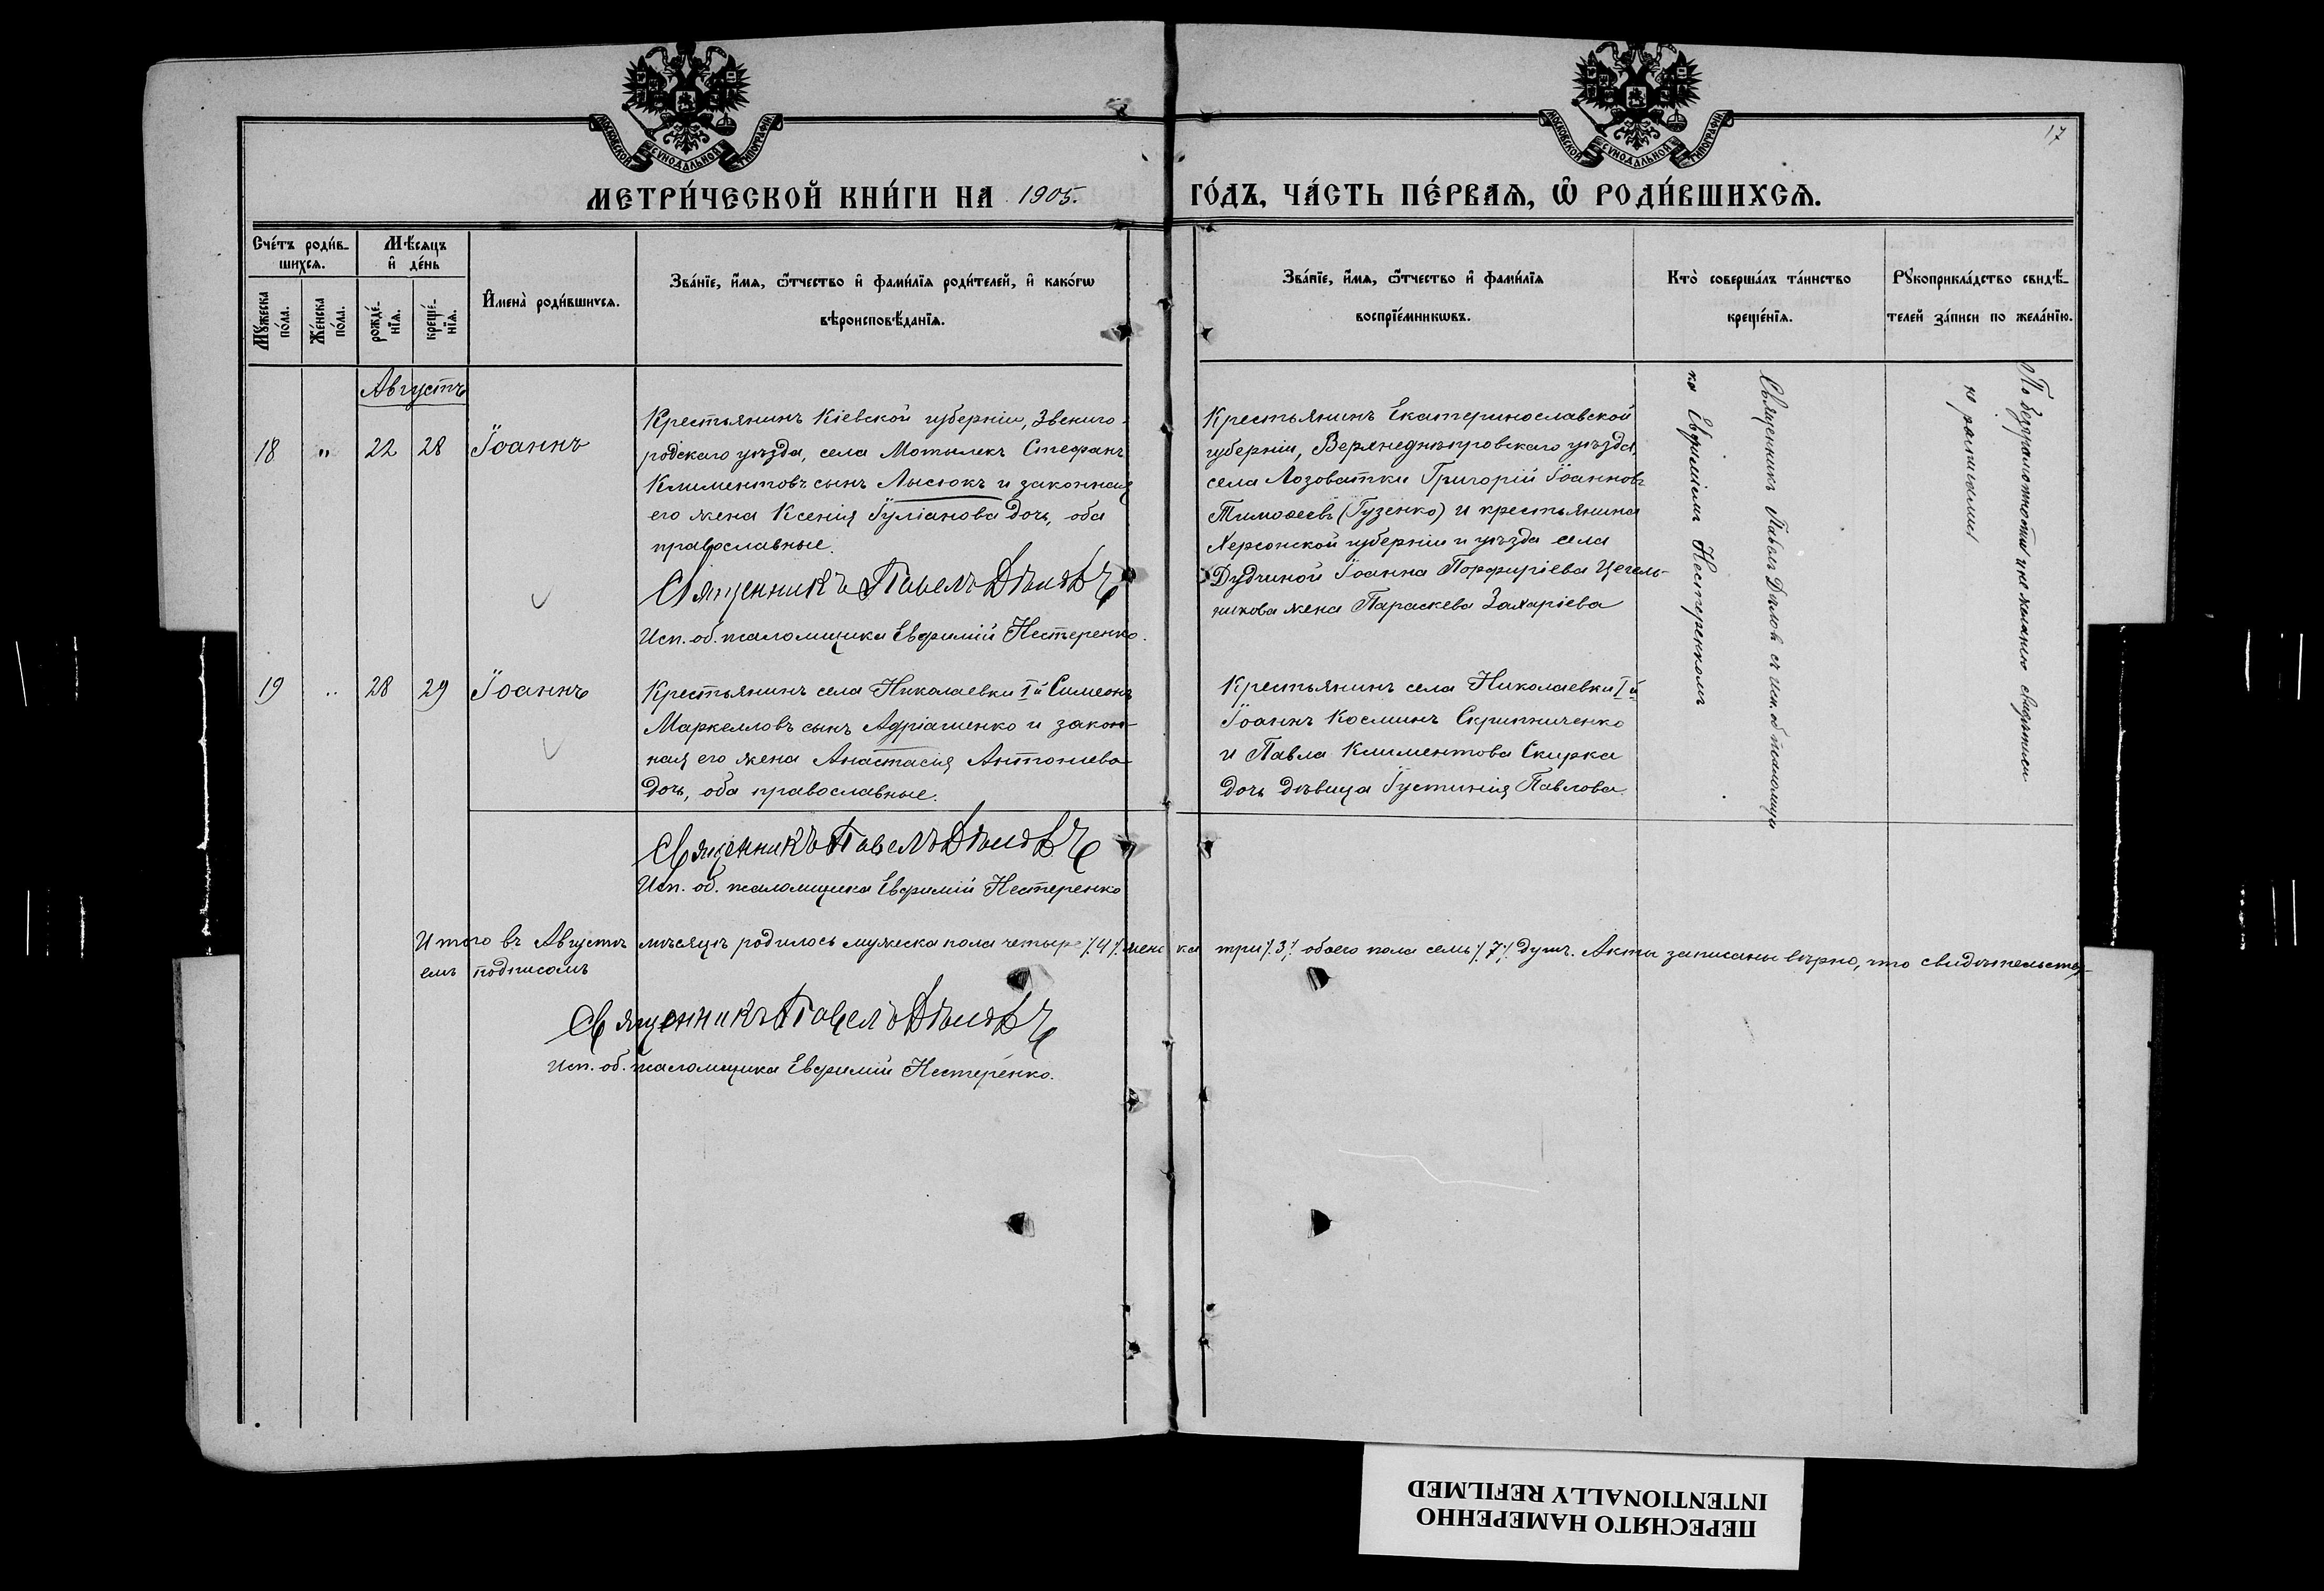 МОСКОВСКОЙ СѴНОДАЛЬНОЙ ТИПОГРАФІИ
МОСКОВСКОЙ СѴНОДАЛЬНОЙ ТИПОГРАФІИ
17
МЕТРИ́ЧЕСКОЙ КНИ́ГИ НА 1905. ГО́ДЪ, ЧА́СТЬ ПЕ́РВАѦ, Ѡ҆ РОДИ́ВШИХСѦ.
Сче́тъ роди́в-
шихсѧ.
Мѣ́сѧцъ
и҆ де́нь
Мꙋ́жеска
по́ла.
Же́нска
по́ла.
рожде́-
нїѧ.
креще́-
нїѧ.
И҆мена̀ роди́вшихсѧ.
Зва́нїе, и҆́мѧ, ѻ҆́тчество и҆ фами́лїѧ роди́телей, и҆ како́гѡ
вѣроисповѣ́данїѧ.
Зва́нїе, и҆́мѧ, ѻ҆́тчество и҆ фами́лїѧ
воспрїе́мникѡвъ.
Кто̀ соверша́лъ та́инство
креще́нїѧ.
Рꙋкоприкла́дство свидѣ́-
телей за́писи по жела́нїю.
Августъ
18 " 22 28 Іоаннъ
Крестьянинъ Кіевской губерніи, Звениго-
родскаго уѣзда, села Мотылекъ Стефанъ
Климентовъ сынъ Лысюкъ и законная
его жена Ксенія Іуліанова дочь, оба
православные.
Священникъ Павелъ
Исп. об. псаломщика Евфимій Нестеренко.
Крестьянинъ Екатеринославской
губерніи, Верхнеднѣпровскаго уѣзда,
села Лозоватки Григорій Іоанновъ
Тимоѳеевъ (Гузенко) и крестьянина
Херсонской губерніи и уѣзда села
Дудчиной Іоанна Порфиріева Цегель-
никова жена Параскева Захаріева
Священникъ Павелъ съ исп. об. псаломщи-
ка Евфиміемъ Нестеренкомъ
По безграмотности и не желанію свидѣтели
не расписались
19 " 28 29 Іоаннъ
Крестьянинъ села Николаевки I й Симеонъ
Маркелловъ сынъ Адріашенко и закон-
ная его жена Анастасія Антоніева
дочь, оба православные.
Крестьянинъ села Николаевки I й
Іоаннъ Косминъ Скрипниченко
и Павла Климентова Скирка
дочь дѣвица Іустинія Павлова.
Священникъ Павелъ
Исп. об. псаломщика Евфимій Нестеренко
Итого въ Августѣ мѣсяцѣ родилось мужеска пола четыре /.4/. женска три /.3/. обоего пола семь /.7/. душъ. Акты записаны вѣрно, что свидѣтельству-
емъ подписомъ
Священникъ Павелъ
Исп. об. псаломщика Евфимій Нестеренко.
ПЕРЕСНЯТО НАМЕРЕННО
INTENTIONALLY REFILMED